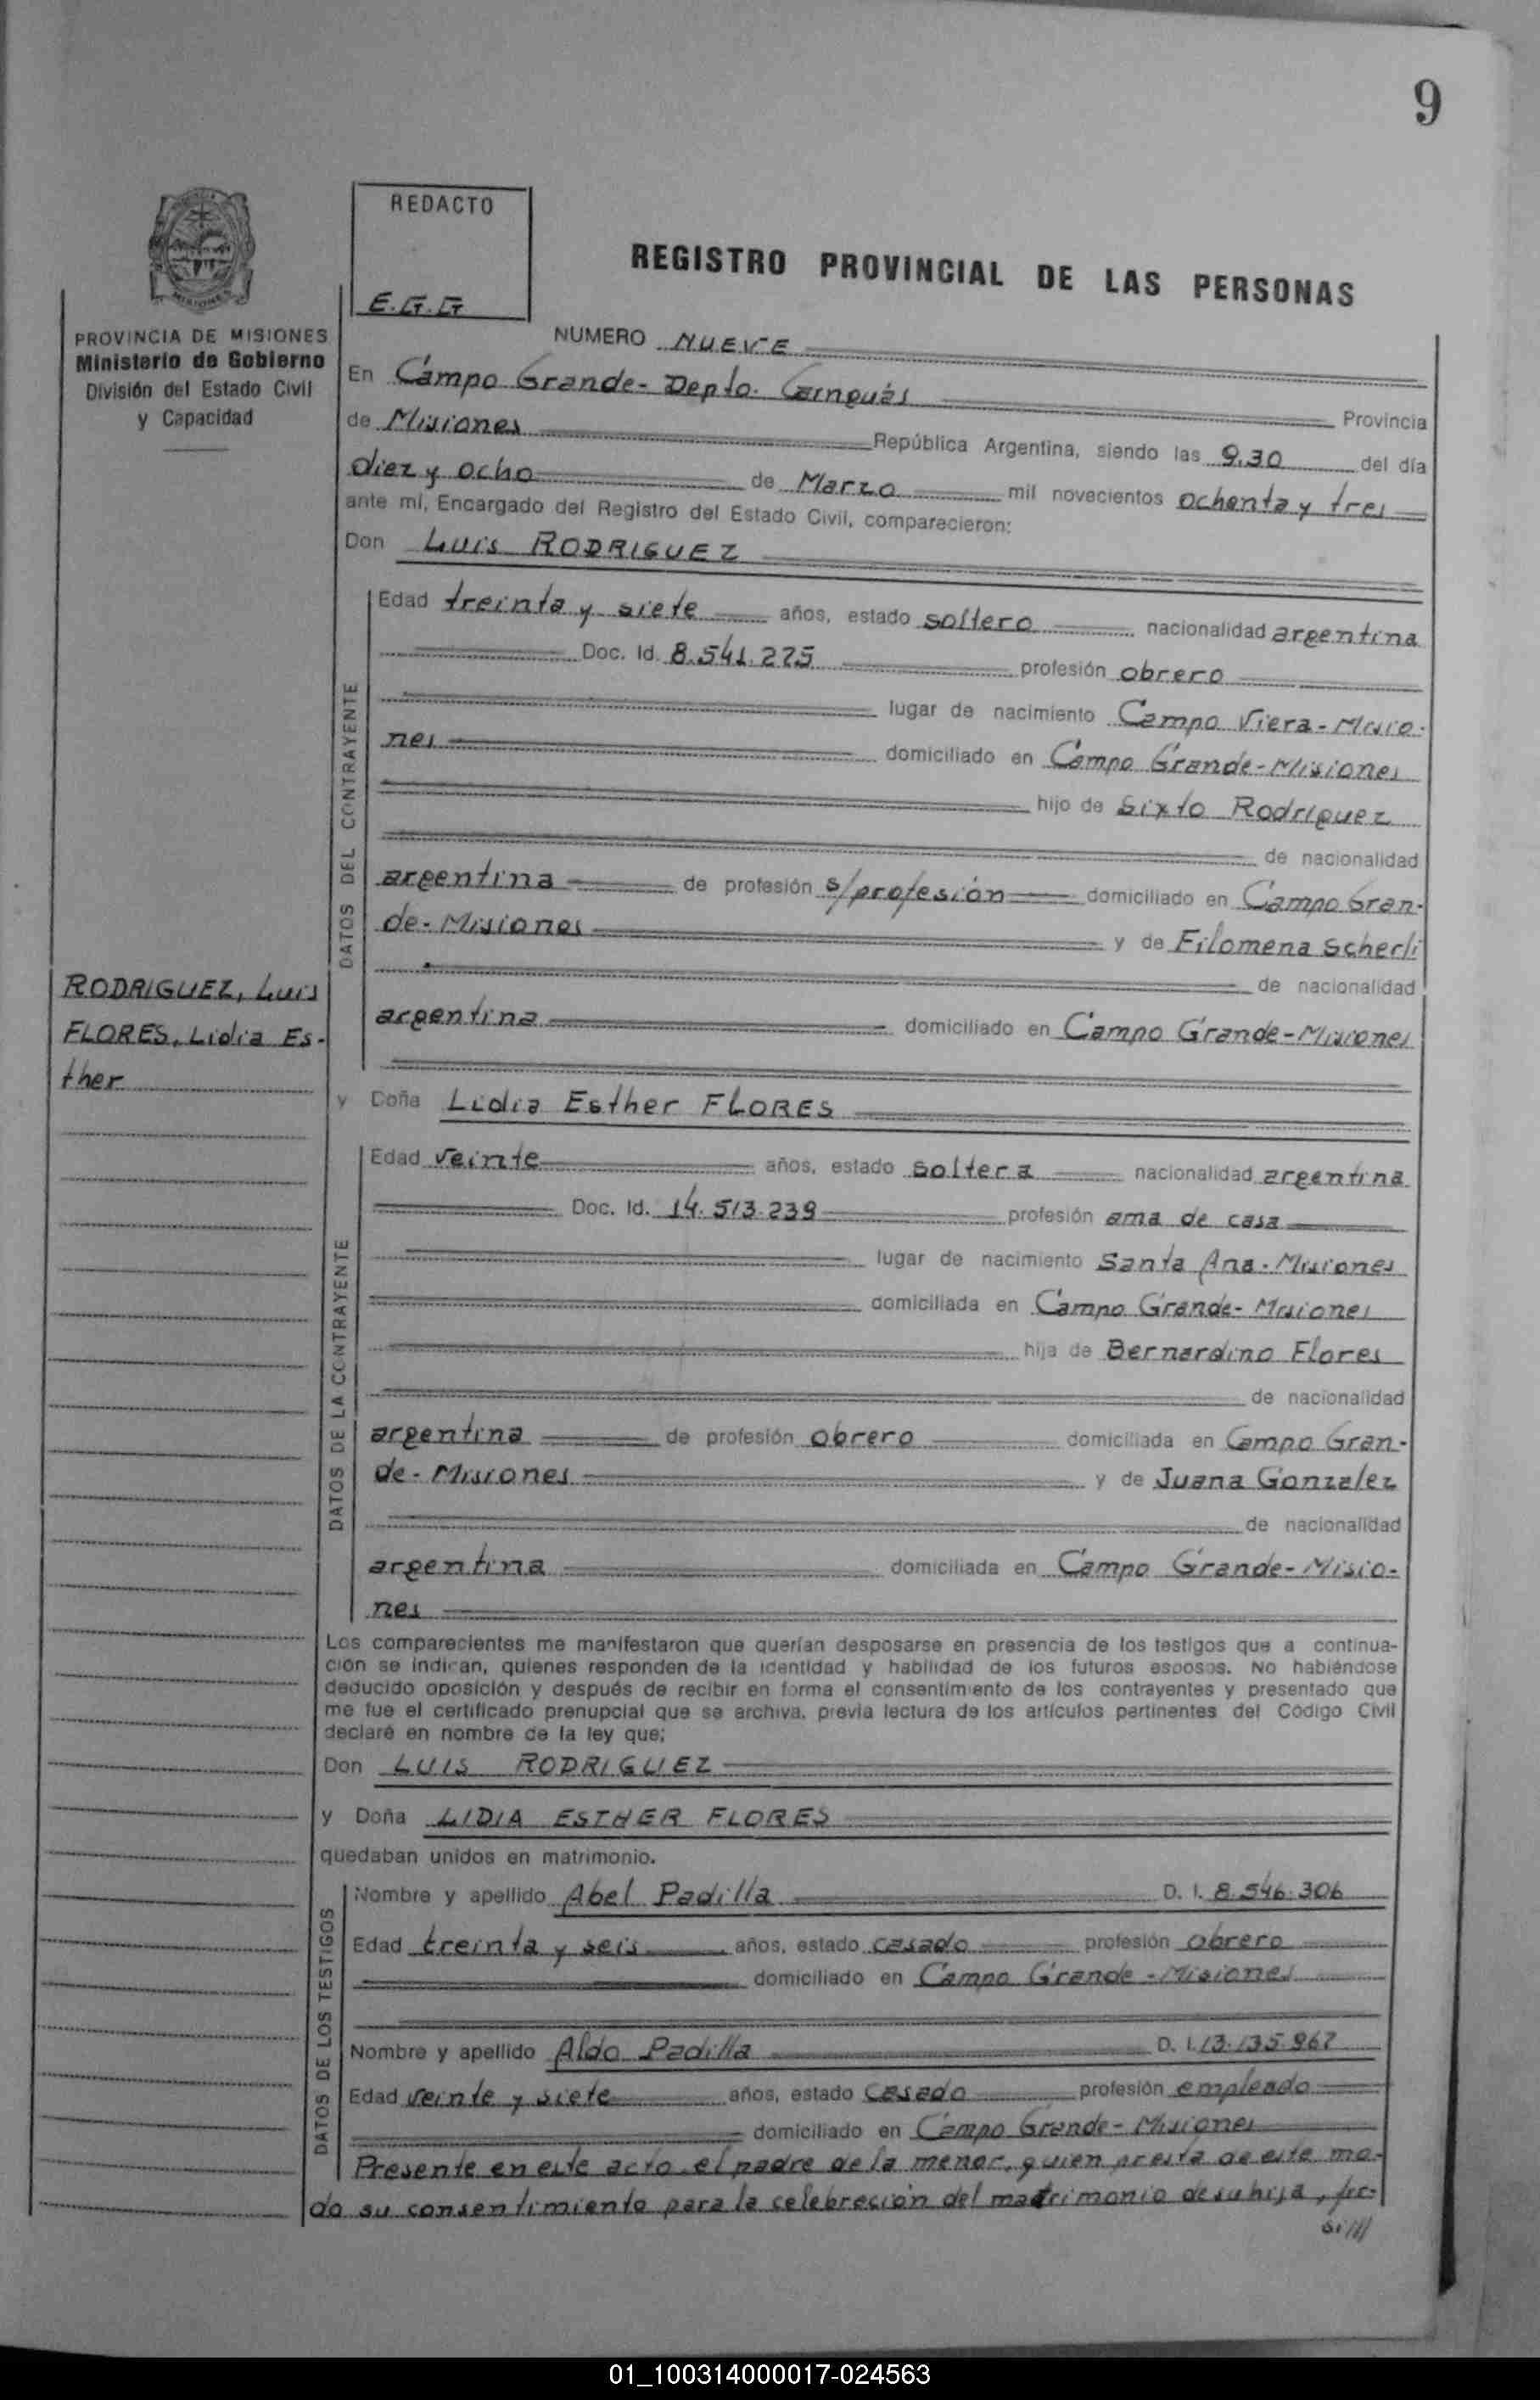 9
REDACTO
E.G.G
REGISTRO PROVINCIAL DE LAS PERSONAS
MISIONES
PROVINCIA DE MISIONES
Ministerio de Gobierno
División del Estado Civil
y Capacidad
NUMERO NUEVE
En Campo Grande- Depto. Cainguás
Provincia
de Misiones República Argentina, siendo las 9.30 del día
diez y ocho de Marzo mil novecientos ochenta y tres
ante mí, Encargado del Registro del Estado Civil, comparecieron:
Don Luis RODRIGUEZ
DATOS DEL CONTRAYENTE
Edad treinta y siete años, estado soltero nacionalidad argentina
Doc. Id. 8.541.225 profesión obrero
lugar de nacimiento Campo Viera-Misio-
nes domiciliado en Campo Grande-Misiones
hijo de Sixto Rodriguez
de nacionalidad
argentina de profesión s/profesión domiciliado en Campo Gran-
de-Misiones y de Filomena Scherli
de nacionalidad
argentina domiciliado en Campo Grande-Misiones
RODRIGUEZ, Luis
FLORES, Lidia Es-
ther
y Doña Lidia Esther FLORES
DATOS DE LA CONTRAYENTE
Edad veinte años, estado soltera nacionalidad argentina
Doc. Id. 14.513.239 profesión ama de casa
lugar de nacimiento Santa Ana-Misiones
domiciliada en Campo Grande-Misiones
hija de Bernardino Flores
de nacionalidad
argentina de profesión obrero domiciliada en Campo Gran-
de-Misiones y de Juana Gonzalez
de nacionalidad
argentina domiciliada en Campo Grande-Misio-
nes
Los comparecientes me manifestaron que querían desposarse en presencia de los testigos que a continua-
ción se indican, quienes responden de la identidad y habilidad de los futuros esposos. No habiéndose
deducido oposición y después de recibir en forma el consentimiento de los contrayentes y presentado que
me fue el certificado prenupcial que se archiva, previa lectura de los artículos pertinentes del Código Civil
declaré en nombre de la ley que;
Don LUIS RODRIGUEZ
y Doña LIDIA ESTHER FLORES
quedaban unidos en matrimonio.
DATOS DE LOS TESTIGOS
Nombre y apellido Abel Padilla D. I. 8.546.306
Edad treinta y seis años, estado casado profesión obrero
domiciliado en Campo Grande-Misiones
Nombre y apellido Aldo Padilla D. I. 13.135.967
Edad veinte y siete años, estado casado profesión empleado
domiciliado en Campo Grande-Misiones
Presente en este acto el padre de la menor, quien presta de este mo-
do su consentimiento para la celebración del matrimonio de su hija, fir-
01_100314000017-024563